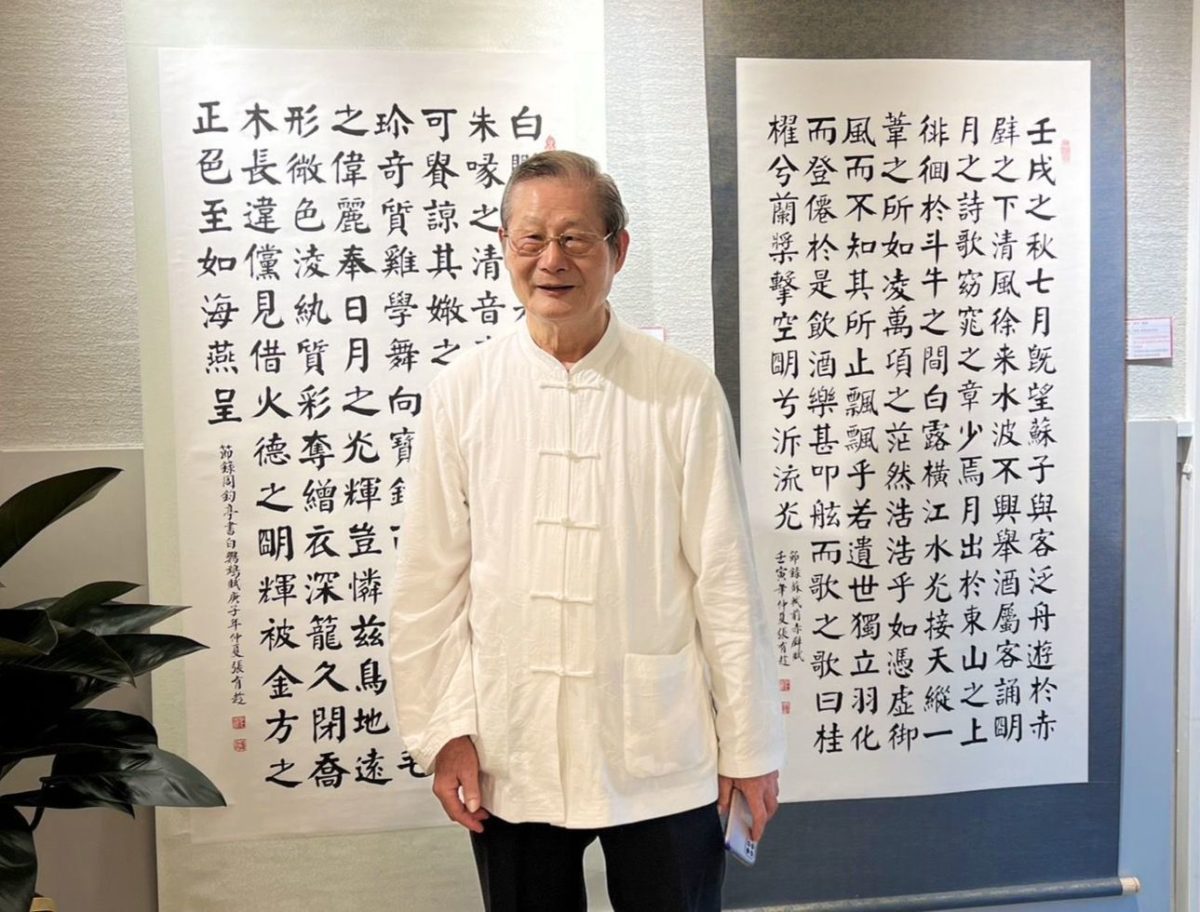 壬戌之秋七月既望蘇子與客泛舟遊於赤
壁之下清風徐来水波不興舉酒屬客誦明
月之詩歌窈窕之章少焉月出於東山之上
徘徊於斗牛之間白露橫江水光接天縱一
葦之所如凌萬頃之茫然浩浩乎如憑虛御
風而不知其所止飄飄乎若遺世獨立羽化
而登僊於是飲酒樂甚叩舷而歌之歌曰桂
櫂兮蘭槳擊空明兮泝流光
節錄蘇軾前赤壁賦
壬寅年仲夏張有
白
朱喙之清音
可諒其嫩之
珍奇質雞學舞向寶毛
之偉麗奉日月之光輝豈憐茲鳥地遠
形微色淩紈質彩奪繒衣深籠久閉喬
木長違儻見借火德之明輝被金方之
正色至如海燕呈
節錄周鈞亭書白鸚鵡賦庚子年仲夏張有